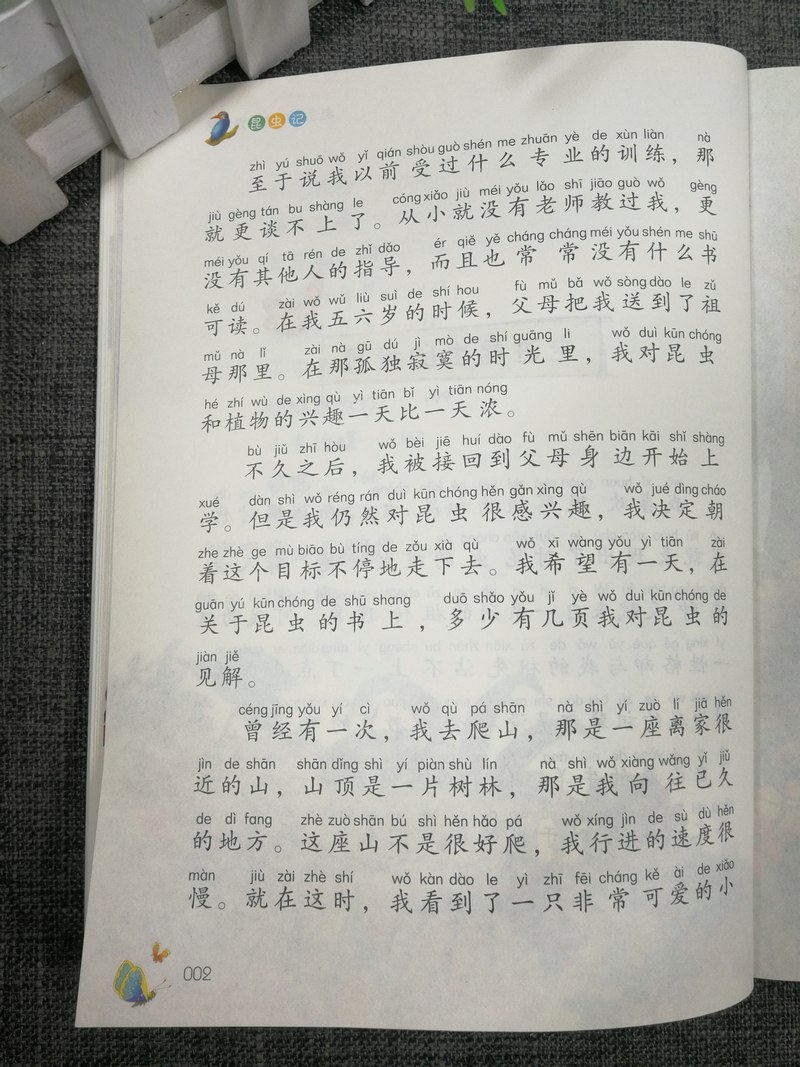 昆虫记
zhì yú shuō wǒ yǐ qián shòu guò shén me zhuān yè de xùn liàn nà
至于说我以前受过什么专业的训练，那
jiù gèng tán bu shàng le cóng xiǎo jiù méi yǒu lǎo shī jiāo guò wǒ gèng
就更谈不上了。从小就没有老师教过我，更
méi yǒu qí tā rén de zhǐ dǎo ér qiě yě cháng cháng méi yǒu shén me shū
没有其他人的指导，而且也常常没有什么书
kě dú zài wǒ wǔ liù suì de shí hou fù mǔ bǎ wǒ sòng dào le zǔ
可读。在我五六岁的时候，父母把我送到了祖
mǔ nà lǐ zài nà gū dú jì mò de shí guāng li wǒ duì kūn chóng
母那里。在那孤独寂寞的时光里，我对昆虫
hé zhí wù de xìng qù yì tiān bǐ yì tiān nóng
和植物的兴趣一天比一天浓。
bù jiǔ zhī hòu wǒ bèi jiē huí dào fù mǔ shēn biān kāi shǐ shàng
不久之后，我被接回到父母身边开始上
xué dàn shì wǒ réng rán duì kūn chóng hěn gǎn xìng qù wǒ jué dìng cháo
学。但是我仍然对昆虫很感兴趣，我决定朝
zhe zhè ge mù biāo bù tíng de zǒu xià qù wǒ xī wàng yǒu yì tiān zài
着这个目标不停地走下去。我希望有一天，在
guān yú kūn chóng de shū shang duō shǎo yǒu jǐ yè wǒ duì kūn chóng de
关于昆虫的书上，多少有几页我对昆虫的
jiàn jiě
见解。
céng jīng yǒu yí cì wǒ qù pá shān nà shì yí zuò lí jiā hěn
曾经有一次，我去爬山，那是一座离家很
jìn de shān shān dǐng shì yí piàn shù lín nà shì wǒ xiàng wǎng yǐ jiǔ
近的山，山顶是一片树林，那是我向往已久
de dì fang zhè zuò shān bú shì hěn hǎo pá wǒ xíng jìn de sù dù hěn
的地方。这座山不是很好爬，我行进的速度很
màn jiù zài zhè shí wǒ kàn dào le yì zhī fēi cháng kě ài de xiǎo
慢。就在这时，我看到了一只非常可爱的小
002